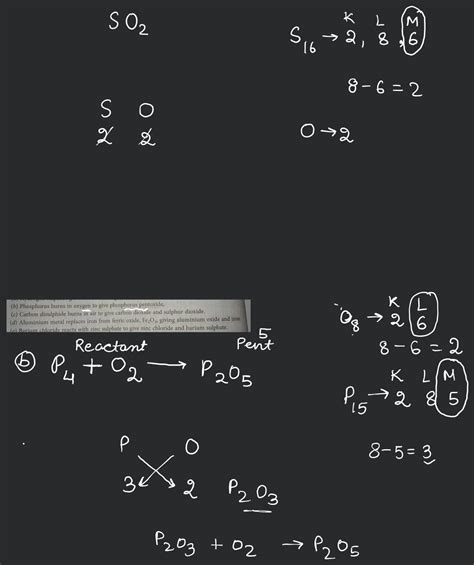 SO₂
K L M
S₁₆ → 2, 8, 6
8 - 6 = 2
S O
2 2
O → 2
(b) Phosphorus burns in oxygen to give phosphorus pentoxide,
(c) Carbon disulphide burns in air to give carbon dioxide and sulphur dioxide.
(d) Aluminium metal replaces iron from ferric oxide, Fe₂O₃, giving aluminium oxide and iron
(e) Barium chloride reacts with zinc sulphate to give zinc chloride and barium sulphate.
K L
O₈ → 2 6
8 - 6 = 2
Reactant
5
Pent
(b) P₄ + O₂ → P₂O₅
K L M
P₁₅ → 2 8 5
8 - 5 = 3
P O
3 2 P₂O₃
P₂O₃ + O₂ → P₂O₅